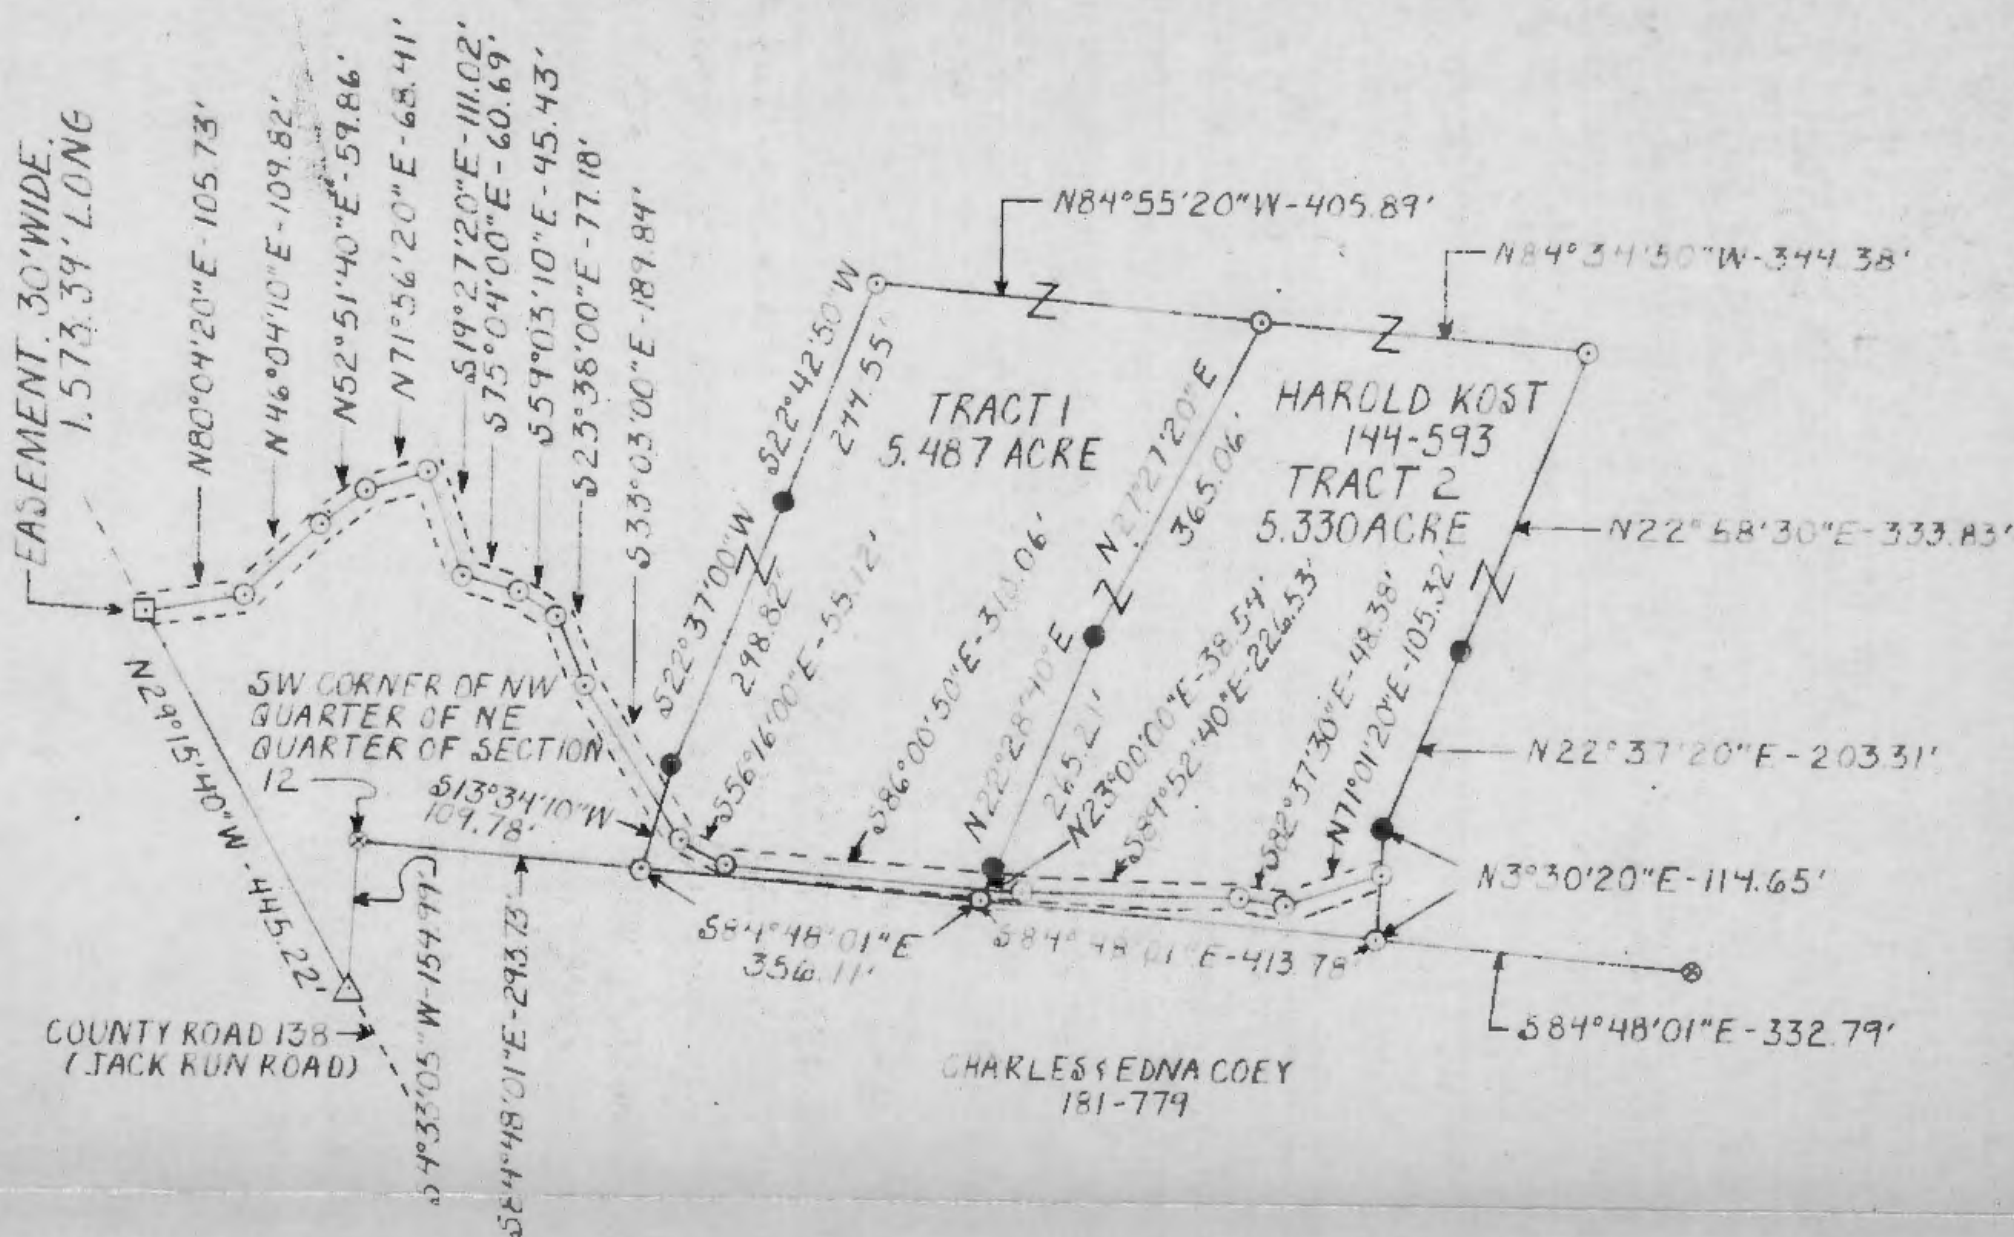 EASEMENT. 30' WIDE.
1.573.39' LONG
N80°04'20"E-105.73'
N46°04'10"E-109.82'
N52°51'40"E-59.86'
N71°56'20"E-68.41'
S19°27'20"E-111.02'
S75°04'00"E-60.69'
S59°03'10"E-45.43'
S23°38'00"E-77.18'
S33°03'00"E-189.84'
N84°55'20"W-405.89'
N84°34'50"W-344.38'
S22°42'50"W
244.55'
TRACT 1
5.487 ACRE
N21°27'20"E
365.06'
HAROLD KOST
144-593
TRACT 2
5.330 ACRE
N22°58'30"E-333.83'
S22°37'00"W
298.82'
S56°16'00"E-55.12'
S86°00'50"E-310.06'
N22°28'40"E
265.21'
N23°00'00"E-38.54'
S89°52'40"E-226.53'
S82°37'30"E-48.38'
N71°01'20"E-105.32'
N22°37'20"E-203.31'
N3°30'20"E-114.65'
N29°15'40"W-445.22'
SW CORNER OF NW
QUARTER OF NE
QUARTER OF SECTION
12
S13°34'10"W
109.78'
S84°48'01"E
356.11'
S84°48'01"E-413.78
S84°48'01"E-332.79'
COUNTY ROAD 138
(JACK RUN ROAD)
S4°33'05"W-154.99'
S84°48'01"E-293.73'
CHARLES & EDNA COEY
181-779